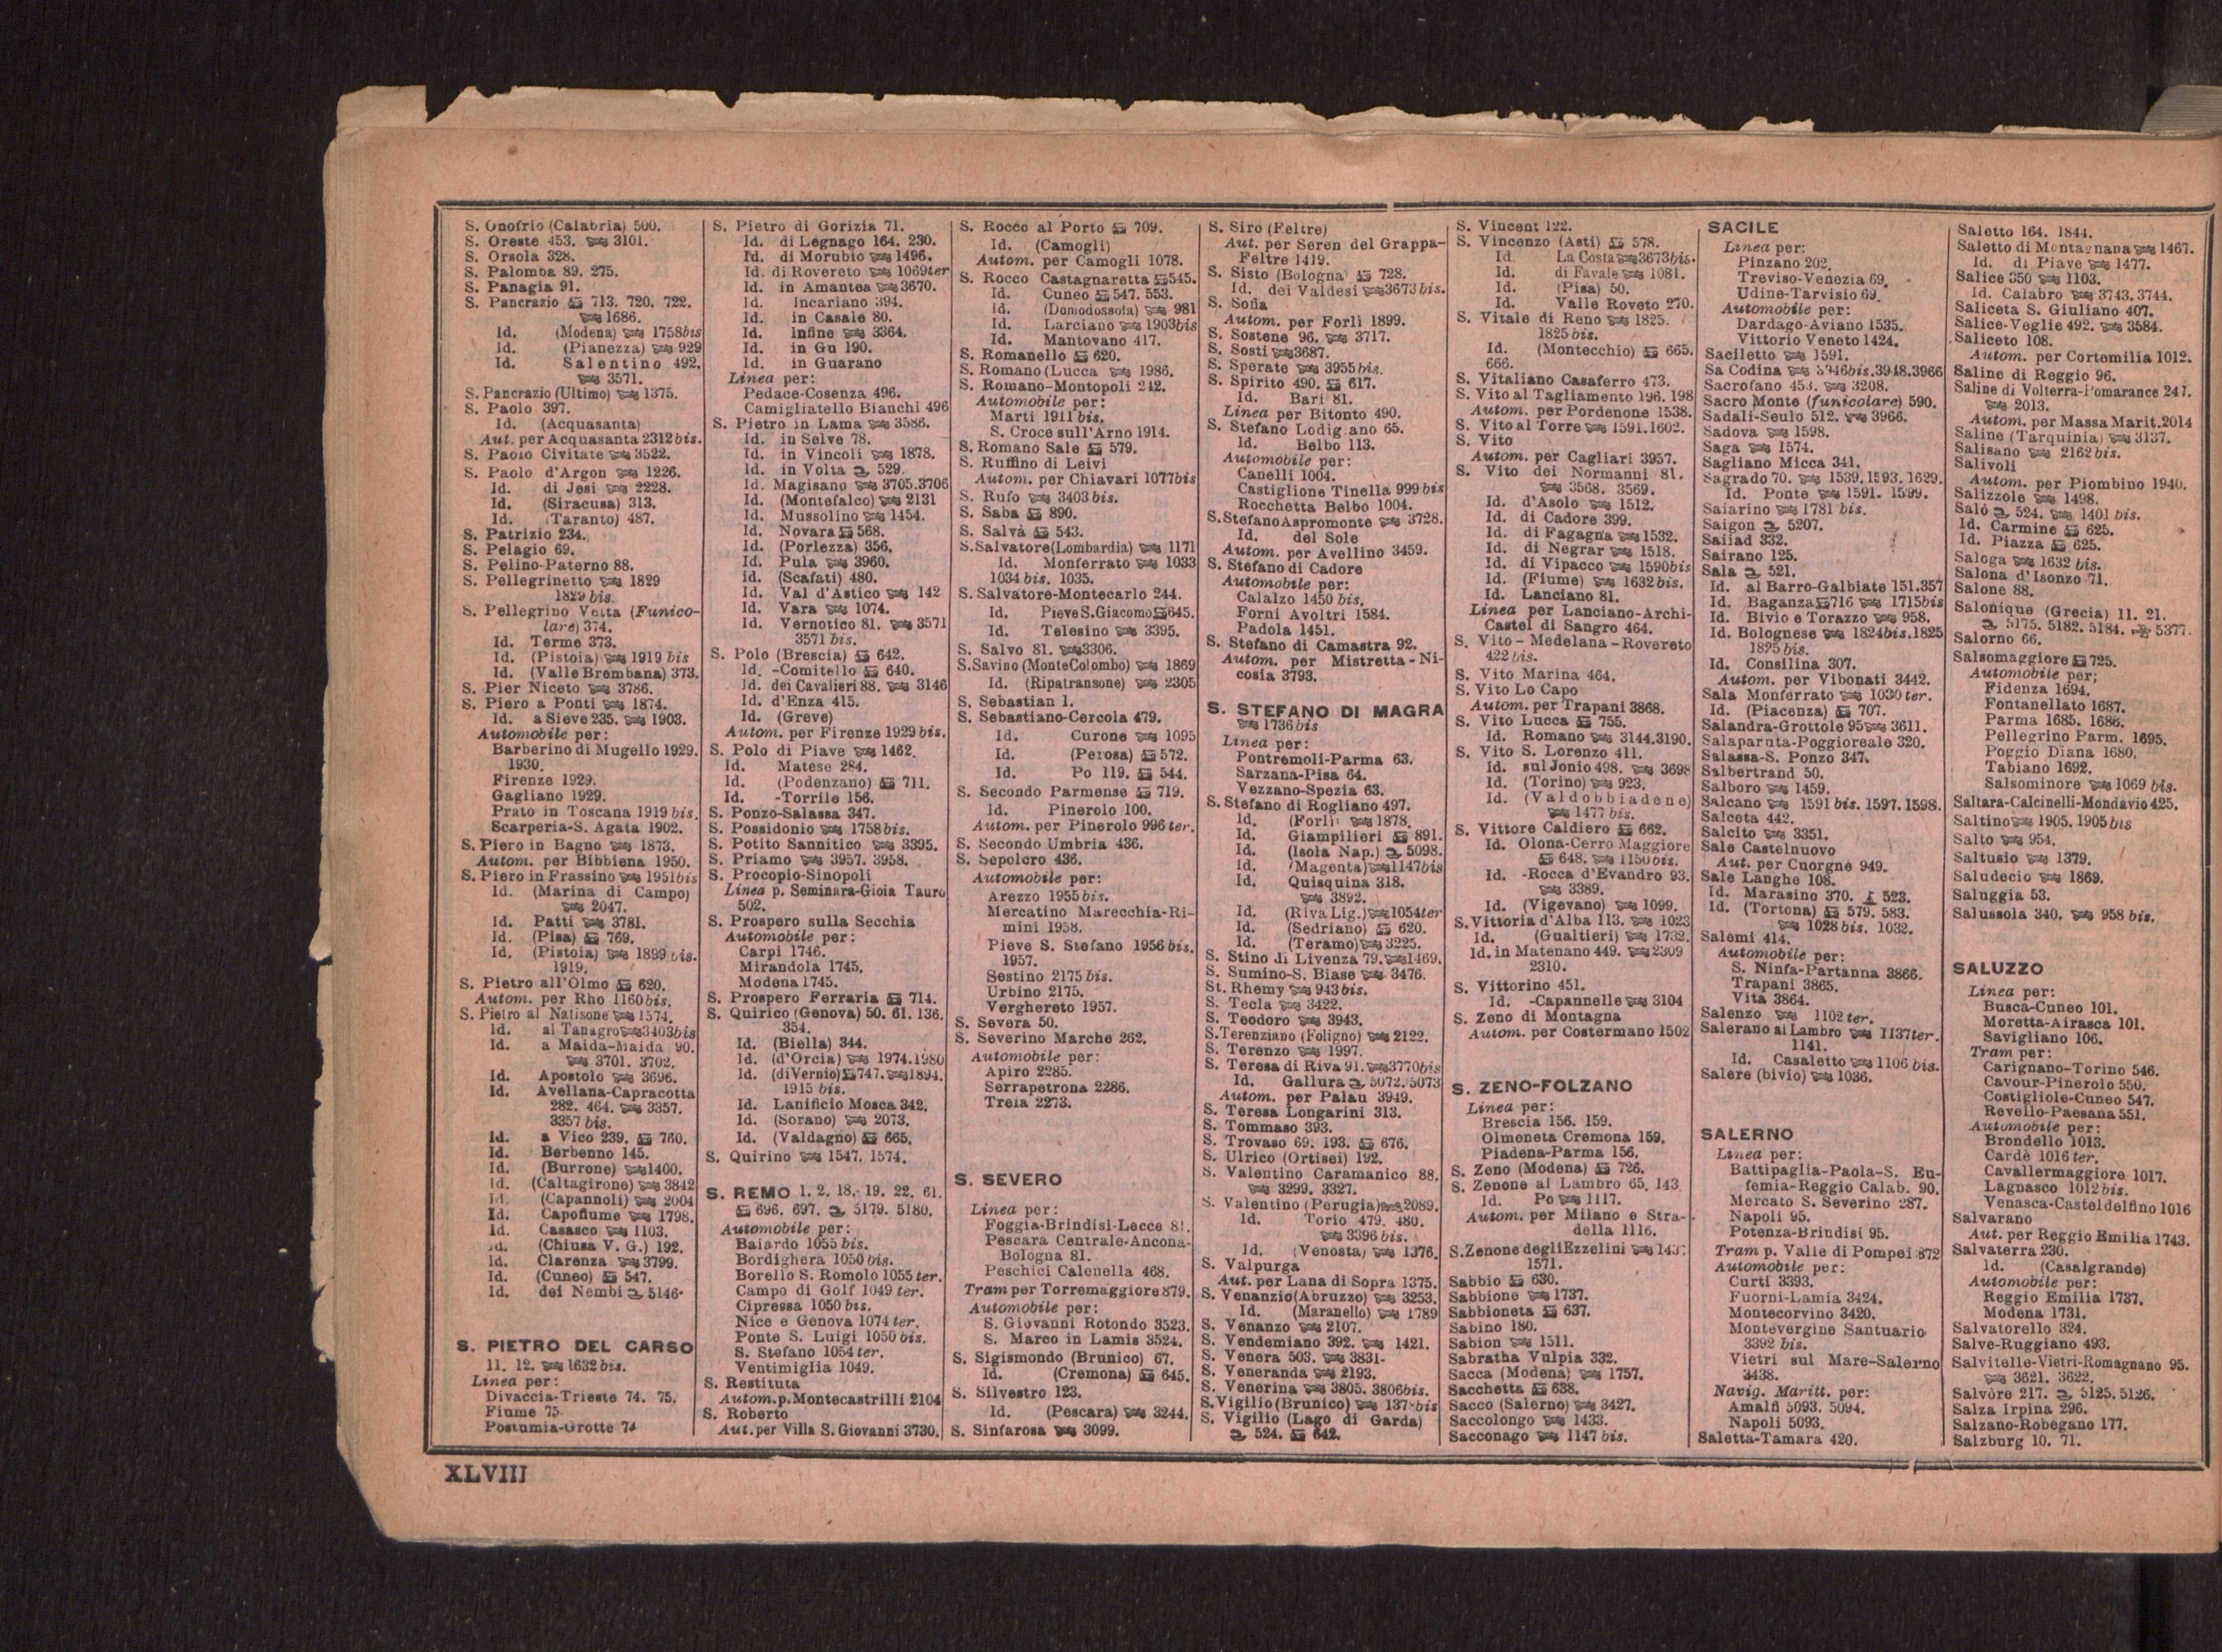 S. Onofrio (Calabria) 500.
S. Oreste 453. 3101.
S. Orsola 328.
S. Palomba 89. 275.
S. Panagia 91.
S. Pancrazio 713. 720. 722.
1686.
Id. (Modena) 1758bis
Id. (Pianezza) 929
Id. Salentino 492.
3571.
S. Pancrazio (Ultimo) 1375.
S. Paolo 397.
Id. (Acquasanta)
Aut. per Acquasanta 2312 bis.
S. Paolo Civitate 3522.
S. Paolo d'Argon 1226.
Id. di Jesi 2228.
Id. (Siracusa) 313.
Id. (Taranto) 487.
S. Patrizio 234.
S. Pelagio 69.
S. Pelino-Paterno 88.
S. Pellegrinetto 1829
1829 bis.
S. Pellegrino Vetta (Funico-
lare) 374.
Id. Terme 373.
Id. (Pistoia) 1919 bis
Id. (Valle Brembana) 373.
S. Pier Niceto 3786.
S. Piero a Ponti 1874.
Id. a Sieve 235. 1903.
Automobile per:
Barberino di Mugello 1929.
1930.
Firenze 1929.
Gagliano 1929.
Prato in Toscana 1919 bis.
Scarperia-S. Agata 1902.
S. Piero in Bagno 1873.
Autom. per Bibbiena 1950.
S. Piero in Frassino 1951bis
Id. (Marina di Campo)
2047.
Id. Patti 3781.
Id. (Pisa) 769.
Id. (Pistoia) 1899 bis.
1919.
S. Pietro all'Olmo 620.
Autom. per Rho 1160 bis.
S. Pietro al Natisone 1574.
Id. al Tanagro 3403bis
Id. a Maida-Maida 90.
3701. 3702.
Id. Apostolo 3696.
Id. Avellana-Capracotta
282. 464. 3357.
3357 bis.
Id. a Vico 239. 760.
Id. Berbenno 145.
Id. (Burrone) 1400.
Id. (Caltagirone) 3842
Id. (Capannoli) 2004
Id. Capofiume 1798.
Id. Casasco 1103.
Id. (Chiusa V. G.) 192.
Id. Clarenza 3799.
Id. (Cuneo) 547.
Id. dei Nembi 5146.
S. PIETRO DEL CARSO
11. 12. 1632 bis.
Linea per:
Divaccia-Trieste 74. 75.
Fiume 75.
Postumia-Grotte 74
S. Pietro di Gorizia 71.
Id. di Legnago 164. 230.
Id. di Morubio 1496.
Id. di Rovereto 1069ter
Id. in Amantea 3670.
Id. Incariano 394.
Id. in Casale 80.
Id. Infine 3364.
Id. in Gu 190.
Id. in Guarano
Linea per:
Pedace-Cosenza 496.
Camigliatello Bianchi 496
S. Pietro in Lama 3586.
Id. in Selve 78.
Id. in Vincoli 1878.
Id. in Volta 529.
Id. Magisano 3705.3706
Id. (Montefalco) 2131
Id. Mussolino 1454.
Id. Novara 568.
Id. (Porlezza) 356.
Id. Pula 3960.
id. (Scafati) 480.
Id. Val d'Astico 142
Id. Vara 1074.
Id. Vernotico 81. 3571
3571 bis.
S. Polo (Brescia) 642.
Id. -Comitello 640.
Id. dei Cavalieri 88. 3146
Id. d'Enza 415.
Id. (Greve)
Autom. per Firenze 1929 bis.
S. Polo di Piave 1462.
Id. Matese 284.
Id. (Podenzano) 711.
Id. -Torrile 156.
S. Ponzo-Salassa 347.
S. Possidonio 1758 bis.
S. Potito Sannitico 3395.
S. Priamo 3957. 3958.
S. Procopio-Sinopoli
Linea p. Seminara-Gioia Tauro
502.
S. Prospero sulla Secchia
Automobile per:
Carpi 1746.
Mirandola 1745.
Modena 1745.
S. Prospero Ferraria 714.
S. Quirico (Genova) 50. 61. 136.
354.
Id. (Biella) 344.
Id. (d'Orcia) 1974.1980
Id. (di Vernio) 747. 1894.
1915 bis.
Id. Lanificio Mosca 342.
Id. (Sorano) 2073.
Id. (Valdagno) 665.
S. Quirino 1547. 1574.
S. REMO 1. 2. 18. 19. 22. 61.
696. 697. 5179. 5180.
Automobile per:
Baiardo 1055 bis.
Bordighera 1050 bis.
Borello S. Romolo 1055 ter.
Campo di Golf 1049 ter.
Cipressa 1050 bis.
Nice e Genova 1074 ter.
Ponte S. Luigi 1050 bis.
S. Stefano 1054 ter.
Ventimiglia 1049.
S. Restituta
Autom.p.Montecastrilli 2104
S. Roberto
Aut.per Villa S. Giovanni 3730.
S. Rocco al Porto 709.
Id. (Camogli)
Autom. per Camogli 1078.
S. Rocco Castagnaretta 545.
Id. Cuneo 547. 553.
Id. (Domodossola) 981
Id. Larciano 1903bis
Id. Mantovano 417.
S. Romanello 620.
S. Romano (Lucca 1986.
S. Romano-Montopoli 242.
Automobile per:
Marti 1911 bis.
S. Croce sull'Arno 1914.
S. Romano Sale 579.
S. Ruffino di Leivi
Autom. per Chiavari 1077bis
S. Rufo 3403 bis.
S. Saba 890.
S. Salvà 543.
S.Salvatore(Lombardia) 1171
Id. Monferrato 1033
1034 bis. 1035.
S. Salvatore-Montecarlo 244.
Id. Pieve S.Giacomo 645.
Id. Telesino 3395.
S. Salvo 81. 3306.
S.Savino (MonteColombo) 1869
Id. (Ripatransone) 2305
S. Sebastian 1.
S. Sebastiano-Cercola 479.
Id. Curone 1095
Id. (Perosa) 572.
Id. Po 119. 544.
S. Secondo Parmense 719.
Id. Pinerolo 100.
Autom. per Pinerolo 996 ter.
S. Secondo Umbria 436.
S. Sepolcro 436.
Automobile per:
Arezzo 1955 bis.
Mercatino Marecchia-Ri-
mini 1958.
Pieve S. Stefano 1956 bis.
1957.
Sestino 2175 bis.
Urbino 2175.
Verghereto 1957.
S. Severa 50.
S. Severino Marche 262.
Automobile per:
Apiro 2285.
Serrapetrona 2286.
Treia 2273.
S. SEVERO
Linea per:
Foggia-Brindisi-Lecce 81.
Pescara Centrale-Ancona-
Bologna 81.
Peschici Calenella 468.
Tram per Torremaggiore 879.
Automobile per:
S. Giovanni Rotondo 3523.
S. Marco in Lamis 3524.
S. Sigismondo (Brunico) 67.
Id. (Cremona) 645.
S. Silvestro 123.
Id. (Pescara) 3244.
S. Sinfarosa 3099.
S. Siro (Feltre)
Aut. per Seren del Grappa-
Feltre 1419.
S. Sisto (Bologna 728.
Id. dei Valdesi 3673 bis.
S. Sofia
Autom. per Forlì 1899.
S. Sostene 96. 3717.
S. Sosti 3687.
S. Sperate 3955 bis.
S. Spirito 490. 617.
Id. Bari 81.
Linea per Bitonto 490.
S. Stefano Lodigiano 65.
Id. Belbo 113.
Automobile per:
Canelli 1004.
Castiglione Tinella 999 bis
Rocchetta Belbo 1004.
S.Stefano Aspromonte 3728.
Id. del Sole
Autom. per Avellino 3459.
S. Stefano di Cadore
Automobile per:
Calalzo 1450 bis.
Forni Avoltri 1584.
Padola 1451.
S. Stefano di Camastra 92.
Autom. per Mistretta-Ni-
cosia 3793.
S. STEFANO DI MAGRA
1736 bis
Linea per:
Pontremoli-Parma 63.
Sarzana-Pisa 64.
Vezzano-Spezia 63.
S.Stefano di Rogliano 497.
Id. (Forlì 1878.
Id. Giampilieri 891.
Id. (Isola Nap.) 5098.
Id. (Magenta) 1147bis
Id. Quisquina 318.
3892.
Id. (Riva Lig.) 1054ter
Id. (Sedriano) 620.
Id. (Teramo) 3225.
S. Stino di Livenza 79. 1469.
S. Sumino-S. Biase 3476.
St. Rhemy 943 bis.
S. Tecla 3422.
S. Teodoro 3943.
S.Terenziano (Foligno) 2122.
S. Terenzo 1997.
S. Teresa di Riva 91. 3770bis
Id. Gallura 5072.5073
Autom. per Palau 3949.
S. Teresa Longarini 313.
S. Tommaso 393.
S. Trovaso 69. 193. 676.
S. Ulrico (Ortisei) 192.
S. Valentino Caramanico 88.
3299. 3327.
S. Valentino (Perugia) 2089.
Id. Torio 479. 480.
3396 bis.
Id. (Venosta) 1376.
S. Valpurga
Aut. per Lana di Sopra 1375.
S. Venanzio (Abruzzo) 3253.
Id. (Maranello) 1789
S. Venanzo 2107.
S. Vendemiano 392. 1421.
S. Venera 503. 3831.
S. Veneranda 2193.
S. Venerina 3805. 3806bis.
S.Vigilio (Brunico) bis
S. Vigilio (Lago di Garda)
524. 642.
S. Vincent 122.
S. Vincenzo (Asti) 578.
Id. La Costa 3673bis.
Id. di Favale 1081.
Id. (Pisa) 50.
Id. Valle Roveto 270.
S. Vitale di Reno 1825.
1825 bis.
Id. (Montecchio) 665.
666.
S. Vitaliano Casaferro 473.
S. Vito al Tagliamento 196. 198
Autom. per Pordenone 1538.
S. Vito al Torre 1591.1602.
S. Vito
Autom. per Cagliari 3957.
S. Vito dei Normanni 81.
3568. 3569.
Id. d'Asolo 1512.
Id. di Cadore 399.
Id. di Fagagna 1532.
Id. di Negrar 1518.
Id. di Vipacco 1590bis
Id. (Fiume) 1632 bis.
Id. Lanciano 81.
Linea per Lanciano-Archi-
Castel di Sangro 464.
S. Vito-Medelana-Rovereto
422 bis.
S. Vito Marina 464.
S. Vito Lo Capo
Autom. per Trapani 3868.
S. Vito Lucca 755.
Id. Romano 3144.3190.
S. Vito S. Lorenzo 411.
Id. sul Jonio 498. 3698
Id. (Torino) 923.
Id. (Valdobbiadene)
1477 bis.
S. Vittore Caldiero 662.
Id. Olona-Cerro Maggiore
648. 1150 bis.
Id. -Rocca d'Evandro 93.
3389.
Id. (Vigevano) 1099.
S.Vittoria d'Alba 113. 1023
Id. (Gualtieri) 1732.
Id. in Matenano 449. 2309
2310.
S. Vittorino 451.
Id. -Capannelle 3104
S. Zeno di Montagna
Autom. per Costermano 1502
S. ZENO-FOLZANO
Linea per:
Brescia 156. 159.
Olmeneta Cremona 159.
Piadena-Parma 156.
S. Zeno (Modena) 726.
S. Zenone al Lambro 65. 143
Id. Po 1117.
Autom. per Milano e Stra-
della 1116.
S.Zenone degli Ezzelini
1571.
Sabbio 630.
Sabbione 1737.
Sabbioneta 637.
Sabino 180.
Sabion 1511.
Sabratha Vulpia 332.
Sacca (Modena) 1757.
Sacchetta 638.
Sacco (Salerno) 3427.
Saccolongo 1433.
Sacconago 1147 bis.
SACILE
Linea per:
Pinzano 202.
Treviso-Venezia 69.
Udine-Tarvisio 69.
Automobile per:
Dardago-Aviano 1535.
Vittorio Veneto 1424.
Saciletto 1591.
Sa Codina 3946bis.3948.3966
Sacrofano 453. 3208.
Sacro Monte (funicolare) 590.
Sadali-Seulo 512. 3966.
Sadova 1598.
Saga 1574.
Sagliano Micca 341.
Sagrado 70. 1539.1593.1629.
Id. Ponte 1591. 1599.
Saiarino 1781 bis.
Saigon 5207.
Saiiad 332.
Sairano 125.
Sala 521.
Id. al Barro-Galbiate 151.357
Id. Baganza 716 1715bis
Id. Bivio e Torazzo 958.
Id. Bolognese 1824bis.1825
1825 bis.
Id. Consilina 307.
Autom. per Vibonati 3442.
Sala Monferrato 1030 ter.
Id. (Piacenza) 707.
Salandra-Grottole 95 3611.
Salaparuta-Poggioreale 320.
Salassa-S. Ponzo 347.
Salbertrand 50.
Salboro 1459.
Salcano 1591 bis. 1597. 1598.
Salceta 442.
Salcito 3351.
Sale Castelnuovo
Aut. per Cuorgnè 949.
Sale Langhe 108.
Id. Marasino 370. 523.
Id. (Tortona) 579. 583.
1028 bis. 1032.
Salemi 414.
Automobile per:
S. Ninfa-Partanna 3866.
Trapani 3865.
Vita 3864.
Salenzo 1102 ter.
Salerano al Lambro 1137ter.
1141.
Id. Casaletto 1106 bis.
Salere (bivio) 1036.
SALERNO
Linea per:
Battipaglia-Paola-S. Eu-
femia-Reggio Calab. 90.
Mercato S. Severino 287.
Napoli 95.
Potenza-Brindisi 95.
Tram p. Valle di Pompei 872
Automobile per:
Curti 3393.
Fuorni-Lamia 3424.
Montecorvino 3420.
Montevergine Santuario
3392 bis.
Vietri sul Mare-Salerno
3438.
Navig. Maritt. per:
Amalfi 5093. 5094.
Napoli 5093.
Saletta-Tamara 420.
Saletto 164. 1844.
Saletto di Montagnana 1467.
Id. di Piave 1477.
Salice 350 1103.
Id. Calabro 3743.3744.
Saliceta S. Giuliano 407.
Salice-Veglie 492. 3584.
Saliceto 108.
Autom. per Cortemilia 1012.
Saline di Reggio 96.
Saline di Volterra-Pomarance 247.
2013.
Autom. per Massa Marit.2014
Saline (Tarquinia) 3137.
Salisano 2162 bis.
Salivoli
Autom. per Piombino 1940.
Salizzole 1498.
Salò 524. 1401 bis.
Id. Carmine 625.
Id. Piazza 625.
Saloga 1632 bis.
Salona d'Isonzo 71.
Salone 88.
Salonique (Grecia) 11. 21.
5175. 5182. 5184. 5377.
Salorno 66.
Salsomaggiore 725.
Automobile per;
Fidenza 1694.
Fontanellato 1687.
Parma 1685. 1686.
Pellegrino Parm. 1695.
Poggio Diana 1680.
Tabiano 1692.
Salsominore 1069 bis.
Saltara-Calcinelli-Mondavio 425.
Saltino 1905. 1905 bis
Salto 954.
Saltusio 1379.
Saludecio 1869.
Saluggia 53.
Salussola 340. 958 bis.
SALUZZO
Linea per:
Busca-Cuneo 101.
Moretta-Airasca 101.
Savigliano 106.
Tram per:
Carignano-Torino 546.
Cavour-Pinerolo 550.
Costigliole-Cuneo 547.
Revello-Paesana 551.
Automobile per:
Brondello 1013.
Cardè 1016 ter.
Cavallermaggiore 1017.
Lagnasco 1012 bis.
Venasca-Casteldelfino 1016
Salvarano
Aut. per Reggio Emilia 1743.
Salvaterra 230.
Id. (Casalgrande)
Automobile per:
Reggio Emilia 1737.
Modena 1731.
Salvatorello 324.
Salve-Ruggiano 493.
Salvitelle-Vietri-Romagnano 95.
3621. 3622.
Salvore 217. 5125.5126.
Salza Irpina 296.
Salzano-Robegano 177.
Salzburg 10. 71.
XLVIII